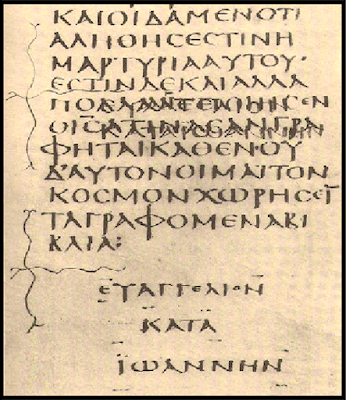 ΚΑΙΟΙΔΑΜΕΝΟΤΙ
ΑΛΗΘΗCΕCΤΙΝΗ
ΜΑΡΤΥΡΙΑΑΥΤΟΥ·
ΕCΤΙΝΔΕΚΑΙΑΛΛΑ
ΟΙ̅C̅ΑΤΙΝΑΕΑΝΓΡΑ
ΦΗΤΑΙΚΑΘΕΝΟΥ
ΔΑΥΤΟΝΟΙΜΑΙΤΟΝ
ΚΟCΜΟΝΧΩΡΗCΕΙ
ΤΑΓΡΑΦΟΜΕΝΑΒΙ
ΒΛΙΑ:
ΕΥΑΓΓΕΛΙΟΝ
ΚΑΤΑ
ΪΩΑΝΝΗΝ